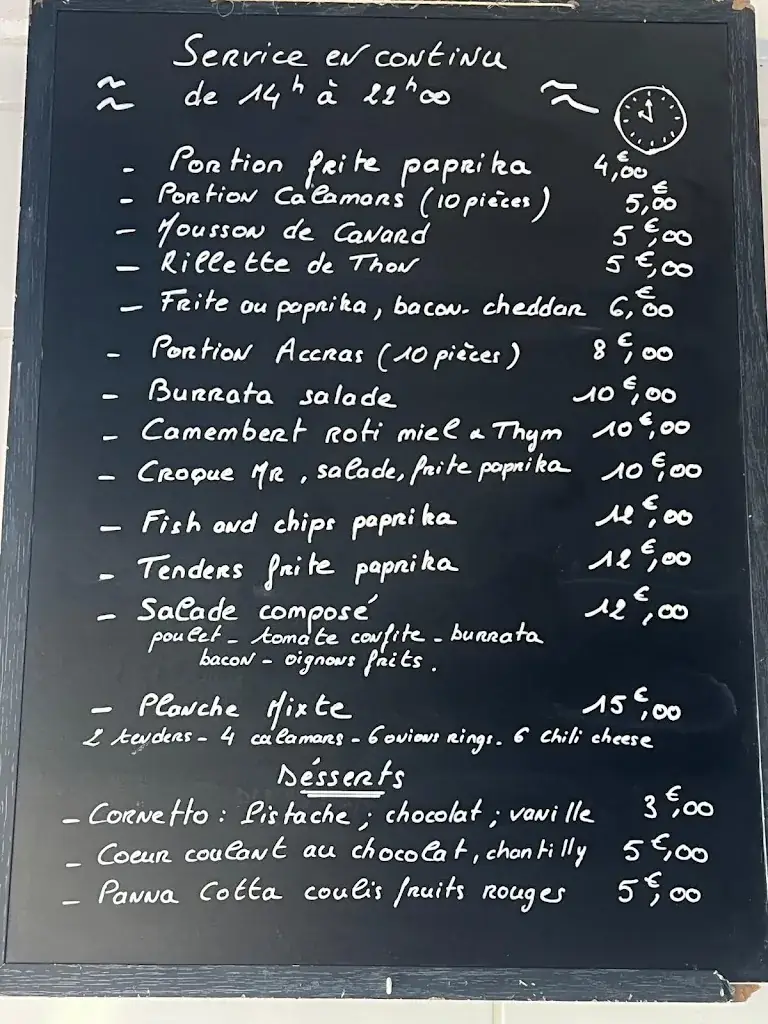 Service en continu
de 14h à 22h00
- Portion frite paprika 4,€00
- Portion Calamars (10 pièces) 5,€00
- Mousson de Canard 5€,00
- Rillette de Thon 5€,00
- Frite au paprika, bacon- cheddar 6,€00
- Portion Accras (10 pièces) 8€,00
- Burrata salade 10€,00
- Camembert Roti miel & Thym 10€,00
- Croque Mr, salade, frite paprika 10€,00
- Fish and chips paprika 12€,00
- Tenders frite paprika 12€,00
- Salade composé 12€,00
poulet - tomate confite - burrata
bacon - oignons frits.
- Planche Mixte 15€,00
2 tenders - 4 calamars - 6 onions rings. 6 Chili cheese
Désserts
- Cornetto : Pistache ; chocolat ; vanille 3€,00
- Coeur coulant au chocolat, chantilly 5€,00
- Panna Cotta coulis fruits rouges 5€,00